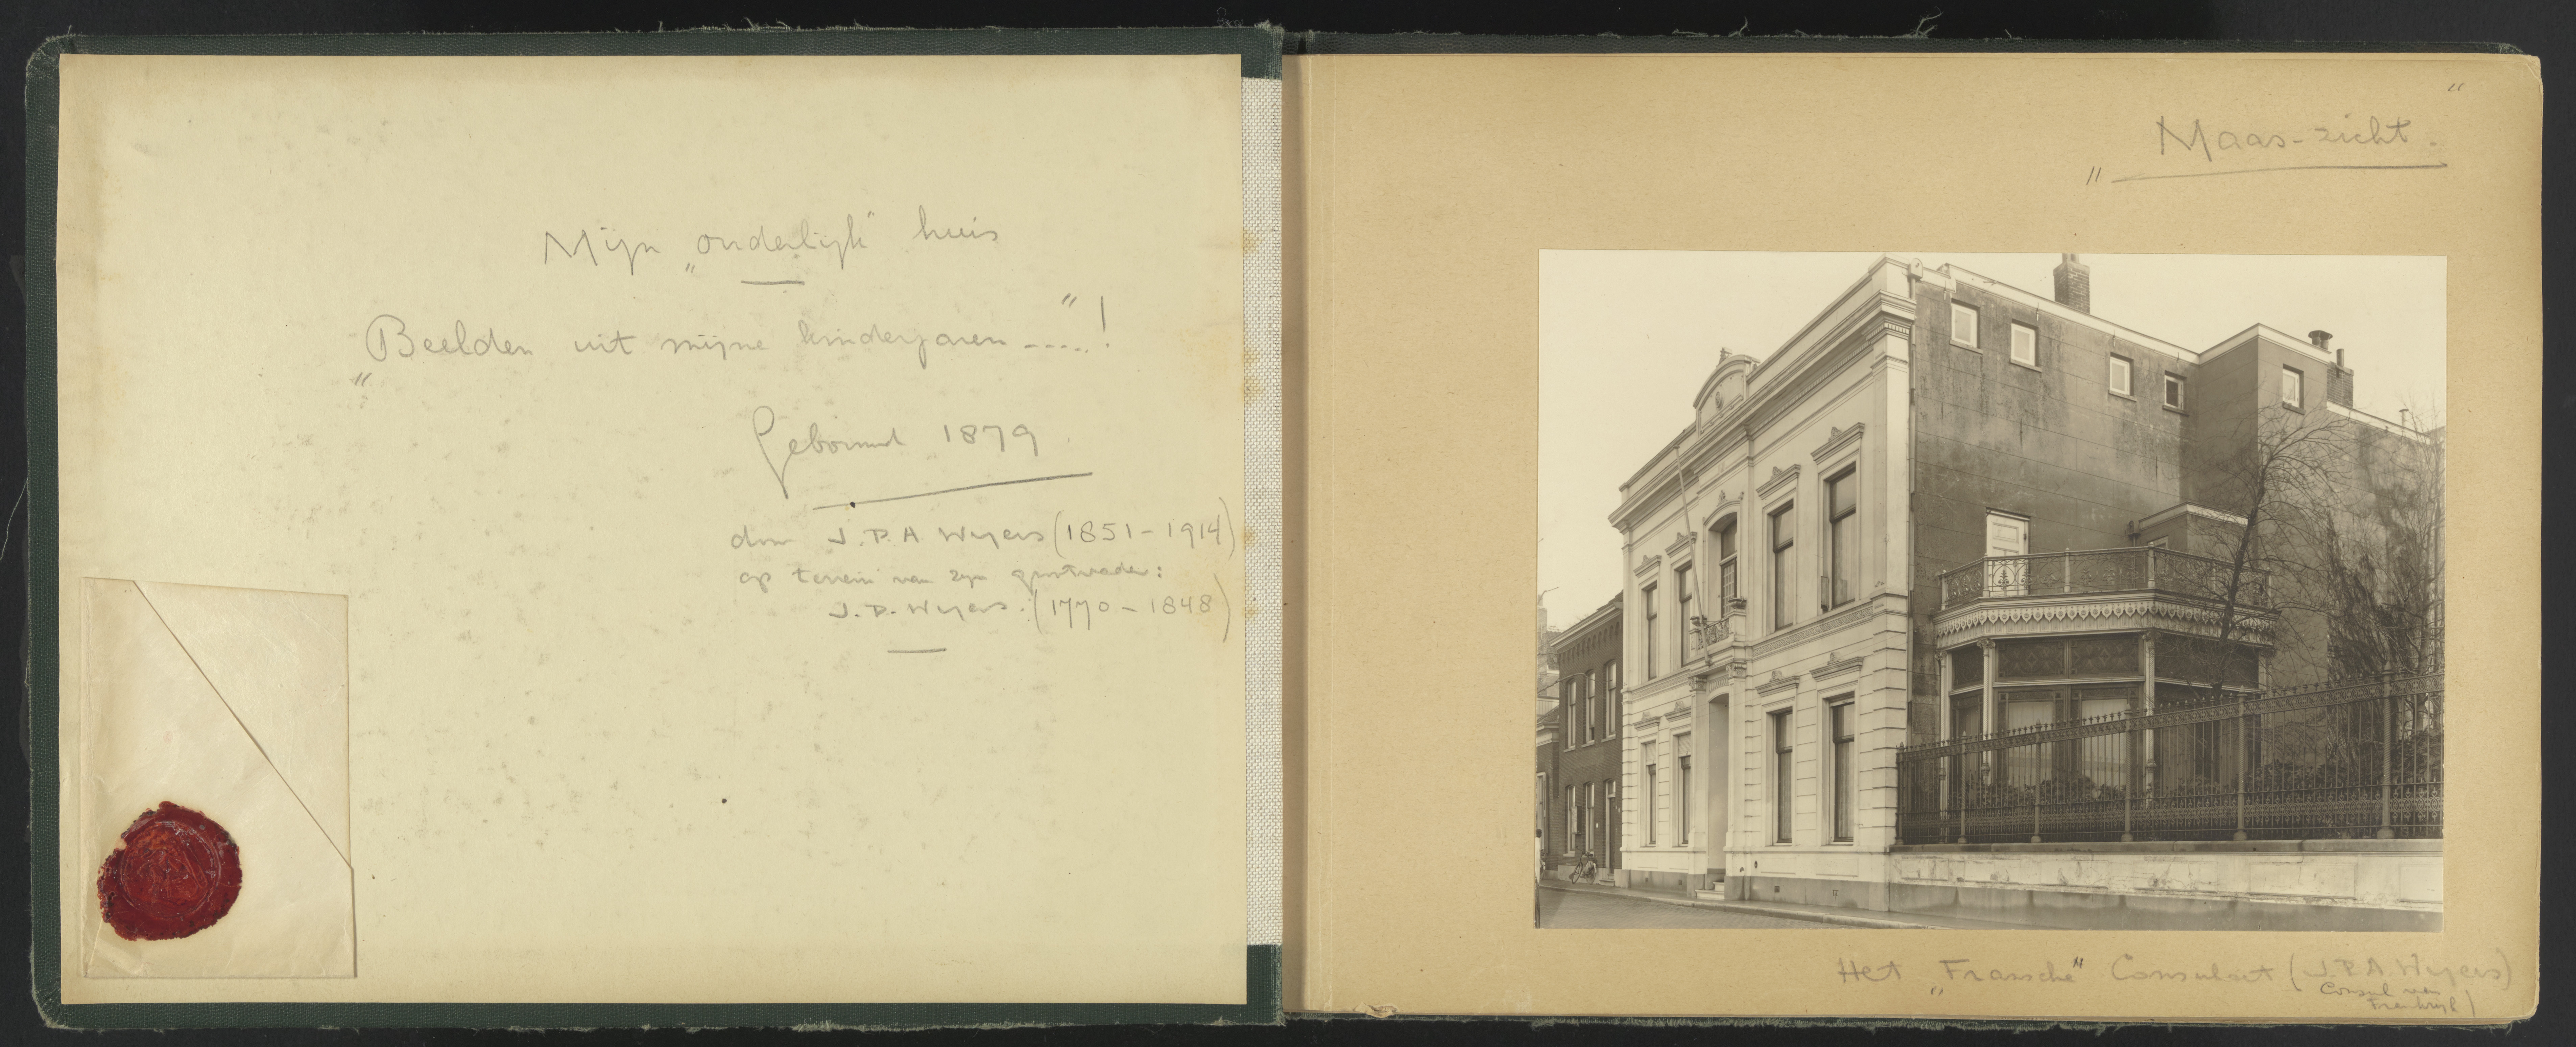 Mijn „ouderlijk" huis
„Beelden uit mijne kinderjaren -----"!
Gebouwd 1879
door J.P.A Wyers (1851-1914)
op terrein van zijn grootvader:
J.P. Wyers. (1770-1848)
„Maas-zicht."
Het „Fransche" Consulaat (J.P.A. Wyers)
Consul van
Frankrijk)